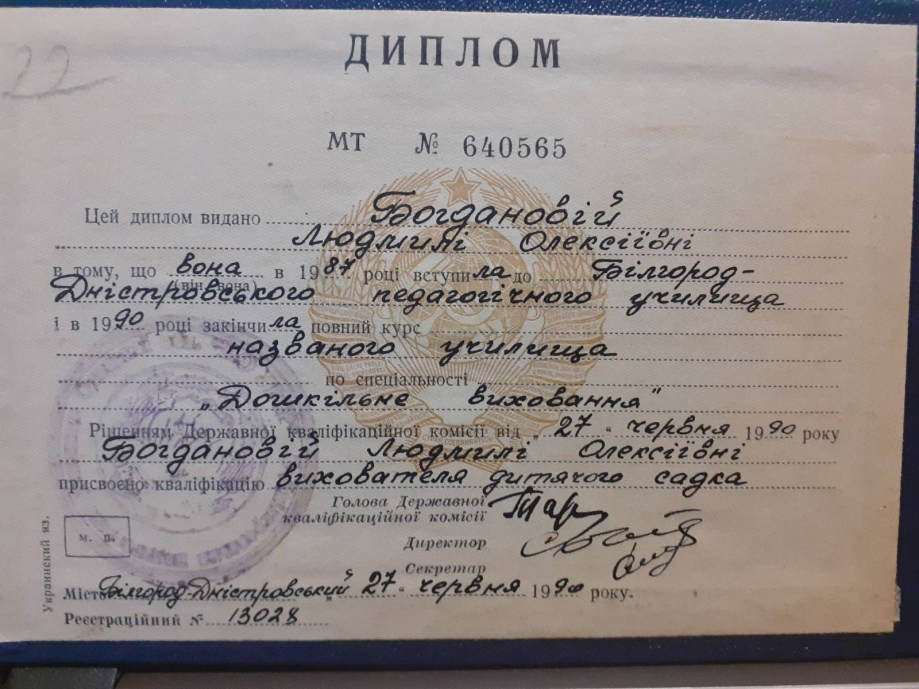 22
ДИПЛОМ
МТ № 640565
Цей диплом видано Богдановій
Людмилі Олексіївні
в тому, що вона в 1987 році вступила до Білгород-
(він, вона)
Дністровського педагогічного училища
і в 1990 році закінчила повний курс
названого училища
по спеціальності
„Дошкільне виховання"
Рішенням Державної кваліфікаційної комісії від „27" червня 1990 року
Богдановій Людмилі Олексіївні
присвоєно кваліфікацію вихователя дитячого садка
Голова Державної
кваліфікаційної комісії
Директор
Секретар
м. п.
Місто Білгород-Дністровський 27 " червня 1990 року.
Реєстраційний № 13028
Украинский яз.